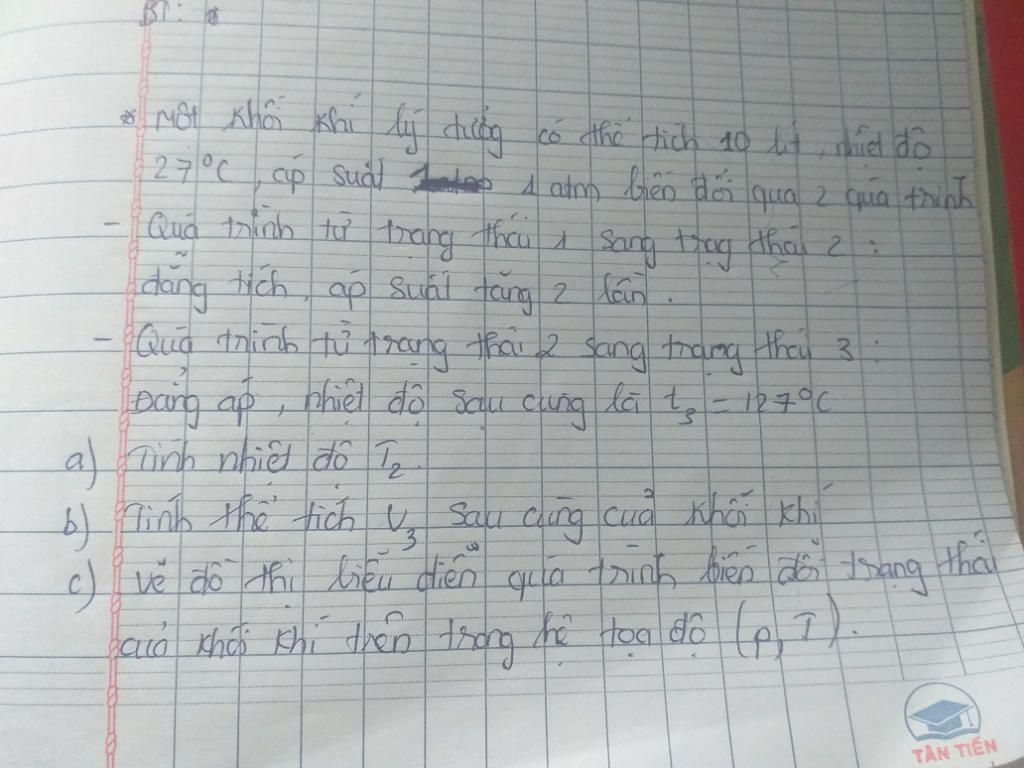 BT:
* Một khối khí lý tưởng có thể tích 10 lít, nhiệt độ
27°C, áp suất 1 atm biến đổi qua 2 quá trình
- Quá trình từ trạng thái 1 sang trạng thái 2:
đẳng tích, áp suất tăng 2 lần.
- Quá trình từ trạng thái 2 sang trạng thái 3:
Đẳng áp, nhiệt độ sau cùng là t₃ = 127°C
a) Tính nhiệt độ T₂.
b) Tính thể tích V₃ sau cùng của khối khí
c) Vẽ đồ thị biểu diễn quá trình biến đổi trạng thái
của khối khí trên trong hệ tọa độ (p, T).
TÂN TIẾN